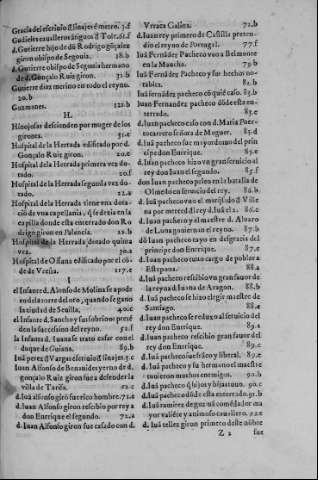 Gracia del escriuio d linajes é metro. 5.f
Gudieles caualleros ãtiguos d Tole. 61.f
d. Gutierre hijo de dõ Rodrigo gõçalez
giron obispo de Segouia. 18.b
d. Gutierre obispo de Segouia hermano
de d. Gonçalo Ruiz giron. 31.b
Gutierre diez merino en todo el reyno.
20.b
Guzmanes. 121.b
H.
Hinojosas descienden por muger de los
girones. 51.c
Hospital de la Herrada edificado por d.
Gonçalo Ruiz giron. 20.e
Hospital de la Herrada primera vez do
tado. 21.d
Hospital de la Herrada segunda vez do
tado. 22.a
Hospital de la Herrada tiene vna dota
cio de vna capellania
capilla donde esta enterrado don Ro
drigo giron en Palencia. 22.b
Hospital de la Herrada dotado quinta
vez. 30.a
Hospital de Ossuna edificado por el cõ-
de de Vreña. 117.e
I
el Infante d. Alfonso de Molina se apode
ro d la torre del oro, quando se gano
la ciudad de Seuilla. 40.c
el Infante d. Sancho y su sobrino: preté
den la succession del reyno. 52.f
la Infanta d. Iuana se trata casar con el
duque de Guiana. 89.b
Iuã perez d Vargas escriuio d linajes. 5.c
Iuan Alfonso de Benauides yerno de d.
gonçalo Ruiz giron fue a defender la
villa de Tarifa. 22.c
d. Iuã alfonso girõ fue rico hombre. 72.e
d. Iuan Alfonso giron rescibio por rey a
don Enrique el segundo. 72.a
d. Iuan Alfonso giron fue casado con d.
Vrraca Gallina. 72.b
d. Iuan rey primero de Castilla preten-
dio el reyno de Portugal. 77.f
Iuã Fernãdez Pacheco vino a Belmonte
en la Mancha. 79.b
Iuã Fernãdez Pacheco y sus hechos no-
tables. 82.b
Iuã fernãdez pacheco cõ quié caso. 83.b
Iuan Fernandez pacheco dõde esta en-
terrado. 83.b
d. Iuan pacheco caso con d. Maria Puer-
tocarrero señora de Moguer. 83.d
d. Iuã pacheco fue mayordomo del prin
cipe don Enrique.
d. Iuan pacheco hizo vn gran seruicio al
rey don Iuan el segundo. 85.f
don Iuan pacheco peleo en la batalla de
Olmedo en seruicio del rey. 86.b
d. Iuã pacheco vuo el marqsado d Ville
na por merced del rey d. Iuã el 2. 86.d
d. Iuan pacheco y el maestre d. Aluaro
de Luna gouiernan el reyno. 87.b
dõ Iuan pacheco tayo en desgracia del
principe don Enrique. 87.c
d. Iuan pacheco tuuo cargo de poblar a
Estepona. 88.a
d. Iuã pacheco rescibio vn gran fauor de
la reyna d. Iuana de Aragon. 88.b
d. Iuan pacheco se hizo elegir maestre de
Santiago. 88.e
d. Iuan pacheco se reduze al seruicio del
rey don Enrique. 89.a
d. Iuan pacheco rescibio gran fauor del
rey don Enrique. 89.c
d. Iuã pacheco fue frãco y liberal. 89.e
d. Iuan pacheco y su hermano el maestre
tuuieron muchos enemigos. 92.b
d. Iuan pacheco q hijos y hijas tuuo. 90.b
d. Iuã pacheco dõde esta enterrado. 91.b
d. Iuã ramirez de guzmã comédador ma
yor valiéte y animoso cauallero. 121.c
d. Iuã tellez giron primero deste nõbre
Z 2 fue